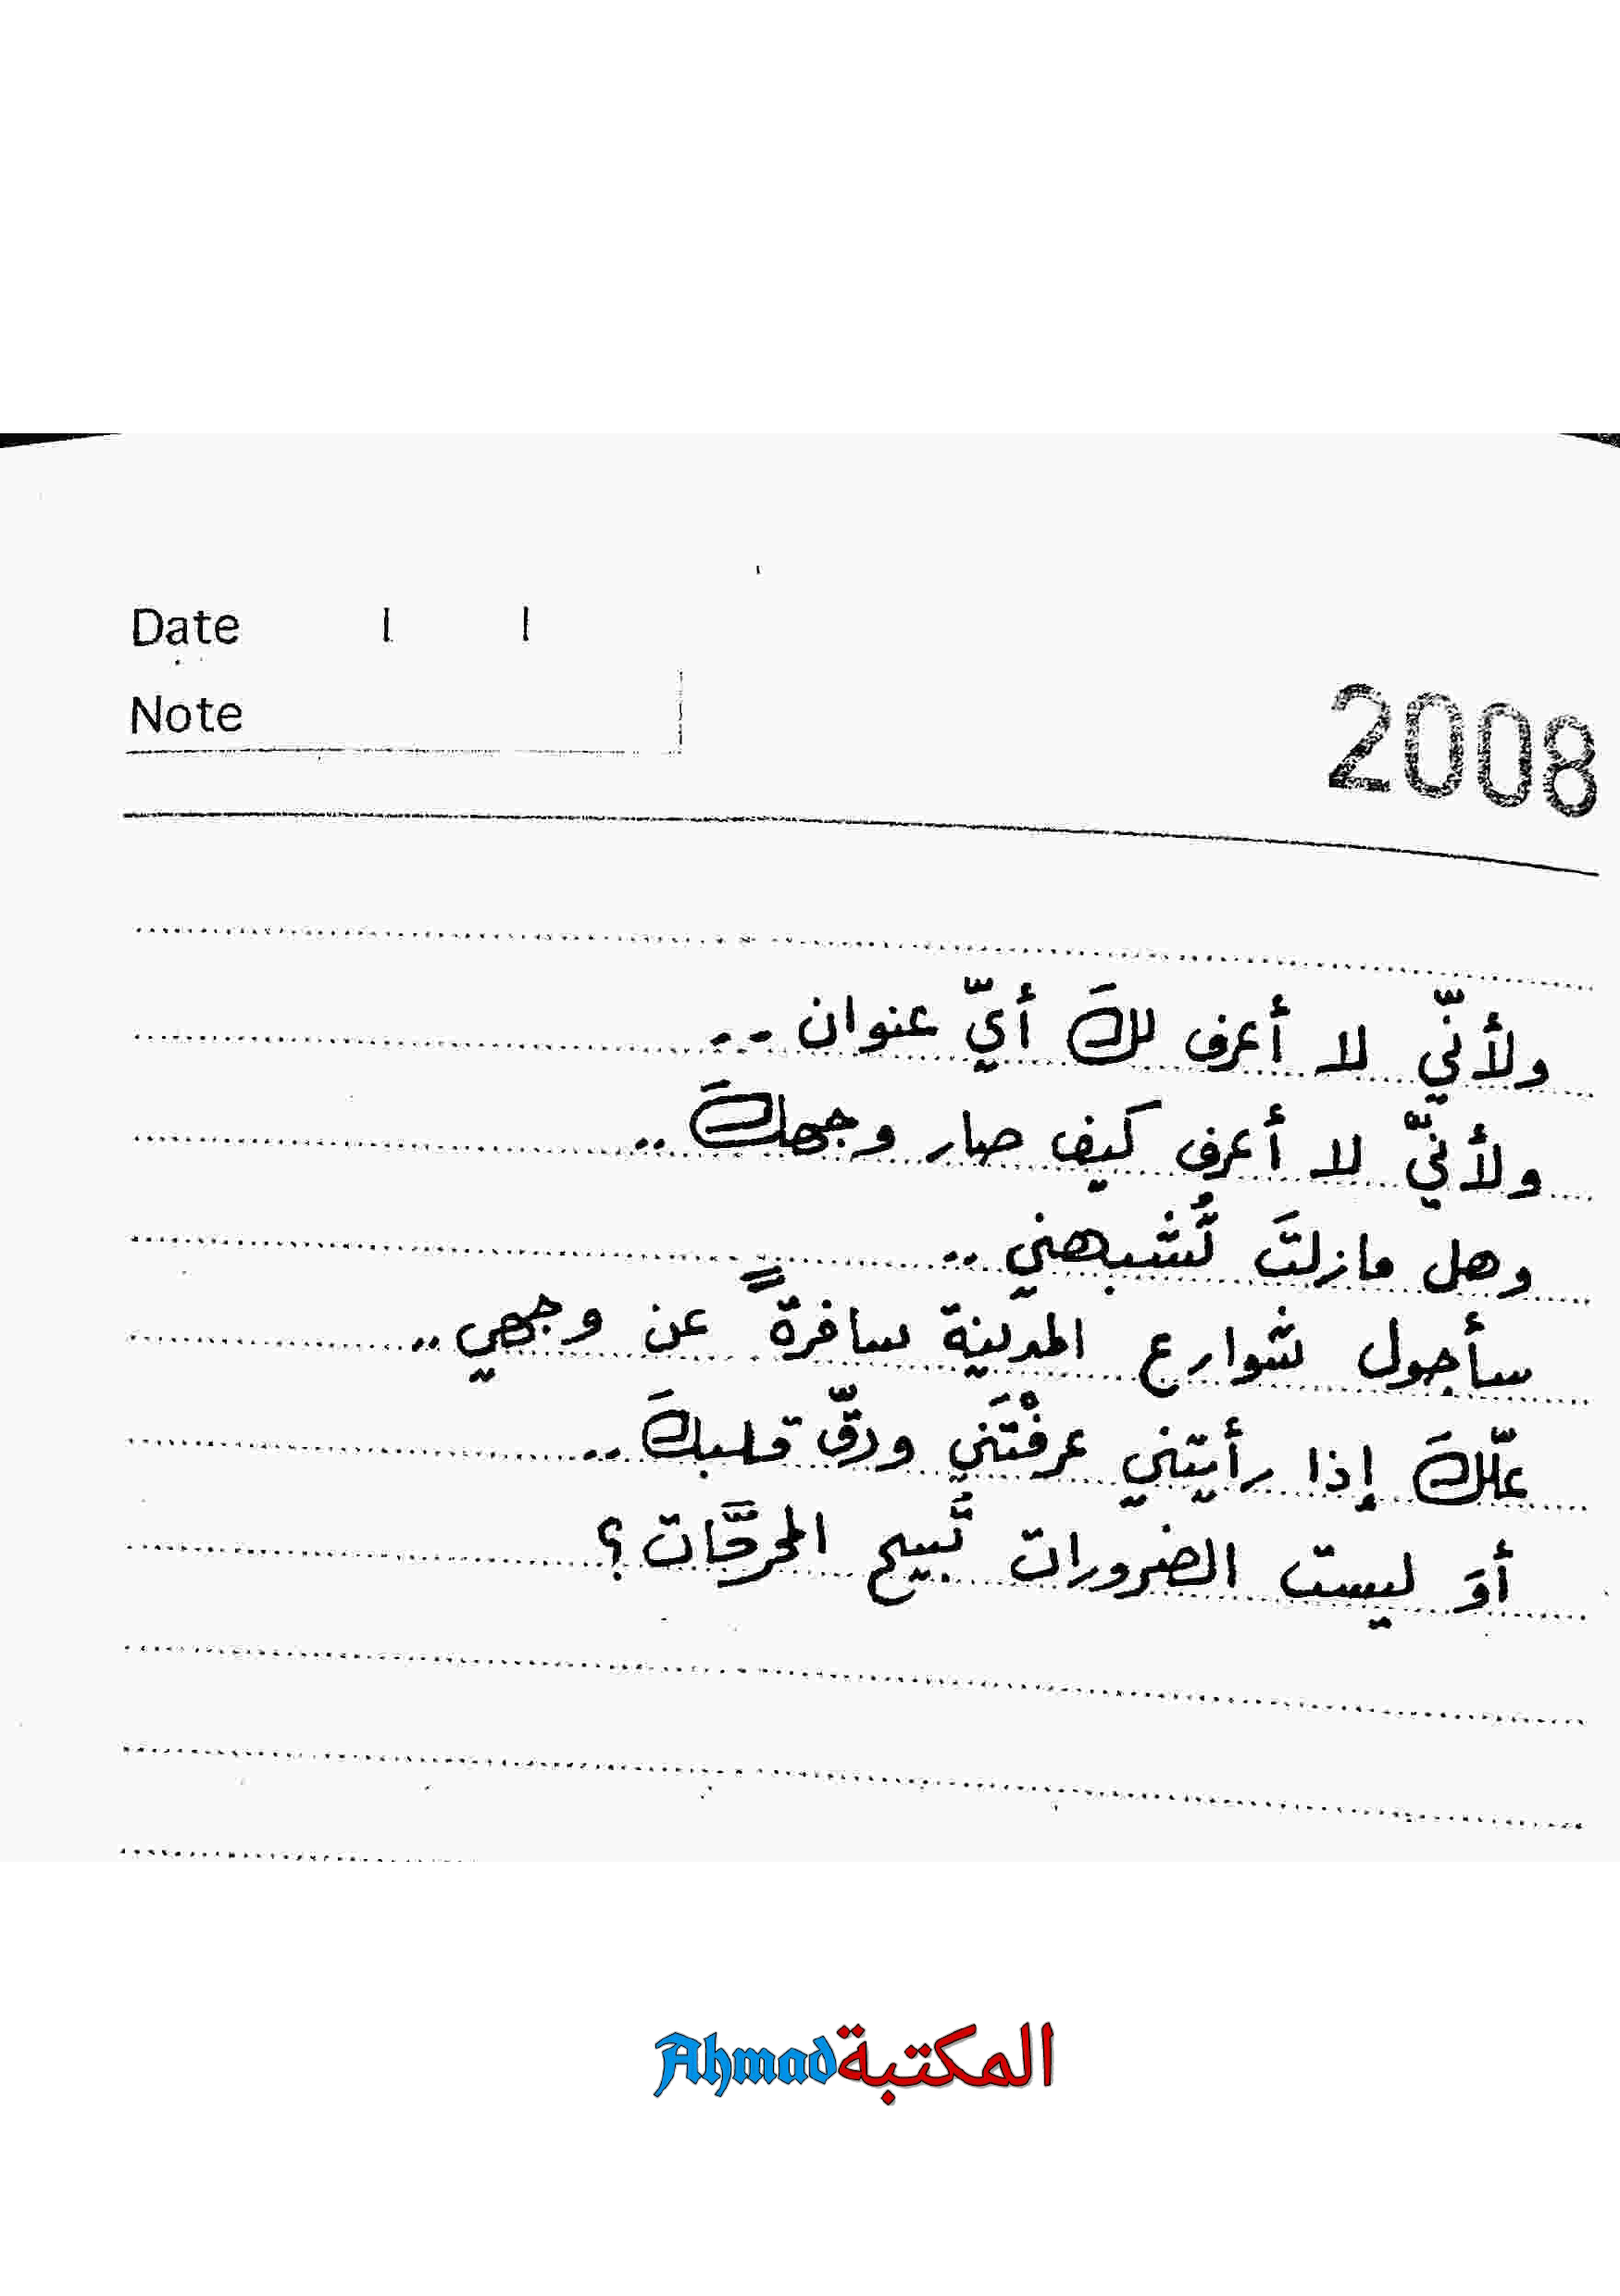 Date / /
Note
2008
ولأنّي لا أعرف لكَ أيّ عنوان ..
ولأنّي لا أعرف كيف صار وجهكَ ..
وهل مازلتَ تُشبهني ..
سأجول شوارع المدينة سافرةً عن وجهي ..
علّكَ إذا رأيتني عرفْتَني ورقّ قلبكَ ..
أوَ ليست الضرورات تَبيح المحرمَّات ؟
المكتبة Ahmad